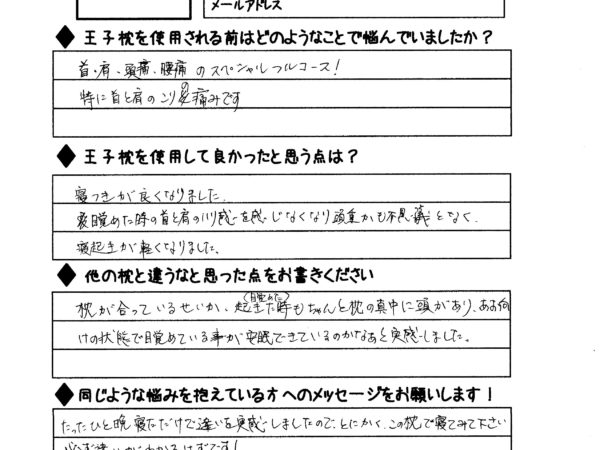 メールアドレス
◆王子枕を使用される前はどのようなことで悩んでいましたか？
首・肩、頭痛、腰痛のスペシャルフルコース！
特に首と肩のこりの痛みです
◆王子枕を使用して良かったと思う点は？
寝つきが良くなりました。
夜目覚めた時の首と肩のコリ感を感じなくなり頭重かも不思議となく、
寝起きが軽くなりました。
◆他の枕と違うなと思った点をお書きください
枕が合っているせいか、起きた時(目覚めた)もちゃんと枕の真中に頭があり、あお向
けの状態で目覚めている事が安眠できているのかなあと実感しました。
◆同じような悩みを抱えている方へのメッセージをお願いします！
たったひと晩寝ただけで違いを実感しましたので、とにかく、この枕で寝てみて下さい
必ず違いがわかるはずです！